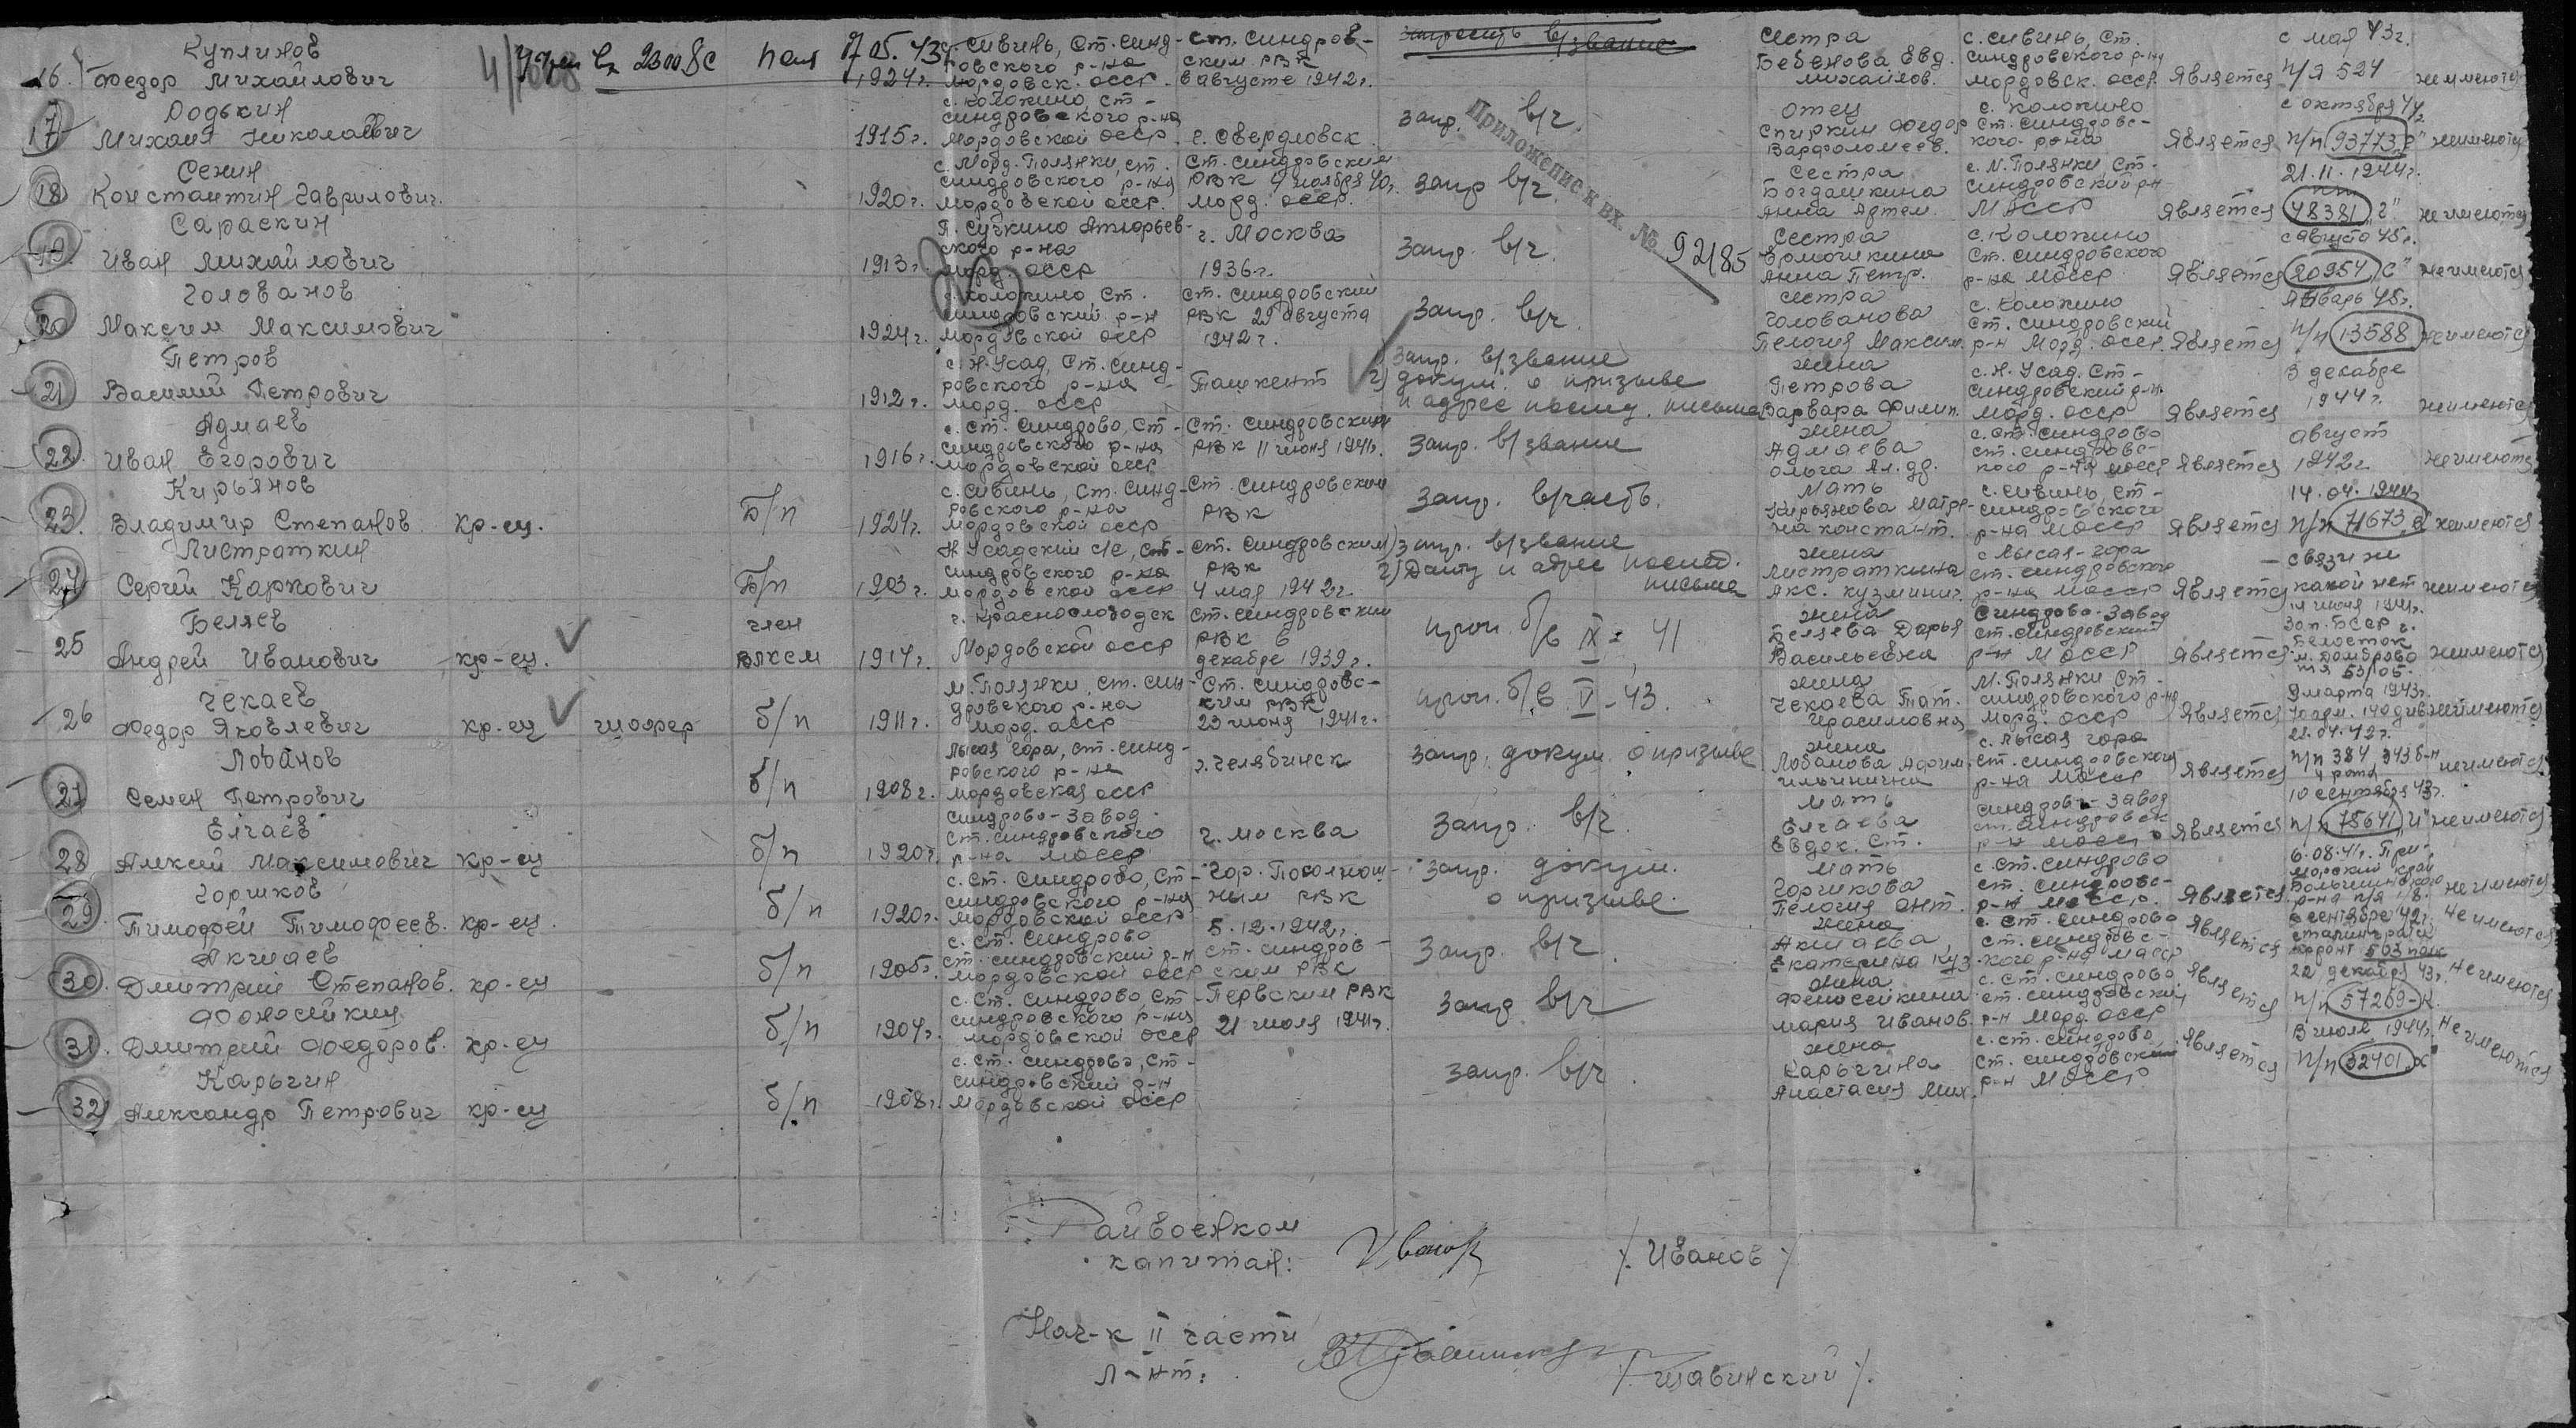 Куплинов
16. Федор Михайлович
7.05.43
1924г.
с. Сивинь, Ст. Синд-
ровского р-на
Мордовск. АССР.
Ст. Синдров-
ским РВК
в августе 1942г.
запросить в/звание
сестра
Бебенова Евд.
Михайлов.
с. Сивинь, Ст.
Синдровского р-на
Мордовск. АССР.
Является
с мая 43г.
п/я 524
не имеются
17 Михаил Николаевич
1915г.
с. Колопино, Ст-
Синдровского р-на
Мордовской АССР
г. Свердловск
запр. в/ч.
Приложение к вх. № 92185
отец
Спиркин Федор
Варфоломеев.
с. Колопино
Ст. Синдровс-
кого р-на
Является
с октября 44г.
п/п 93773
не имеются
Сенин
18 Константин Гаврилович.
1920г.
с. Морд. Полянки, Ст.
Синдровского р-на
Мордовской АССР.
Ст. Синдровским
РВК 4 ноября 40г.
Морд. АССР.
запр в/ч.
сестра
Богдашкина
Анна Артем.
с. М. Полянки, Ст-
Синдровский р-н
МАССР
Является
21.11.1944г.
п/п
48381 "г"
не имеются
Сараскин
19. Иван Михайлович
1913г.
п. Сучкино Атюрьев-
ского р-на
Морд. АССР
г. Москва
1936г.
запр. в/ч.
сестра
Ермочихина
Анна Петр.
с. Колопино
Ст. Синдровского
р-на МАССР
Является
с августа 45г.
20954 "С"
не имеются
Голованов
20 Максим Максимович
1924г.
с. Колопино, Ст.
Синдровский р-н
Мордовской АССР
Ст. Синдровский
РВК 29 августа
1942г.
запр. в/ч.
сестра
Голованова
Пелогия Максим.
с. Колопино
Ст. Синдровский
р-н Морд. АССР.
Является
январь 45г.
п/п 13588
не имеются
Петров
21 Василий Петрович
1912г.
с. Н. Усад, Ст. Синд-
ровского р-на
Морд. АССР
Ташкент
1) запр. в/звание
2) докум. о призыве
и адрес послед. письма
жена
Петрова
Варвара Филип.
с. Н. Усад. Ст-
Синдровский р-н.
Морд. АССР
Является
в декабре
1944г.
не имеются
Адмаев
22. Иван Егорович
1916г.
с. Ст. Синдрово, Ст-
Синдровского р-на
Мордовской АССР
Ст. Синдровским
РВК 11 июня 1941г.
запр. в/звание
жена
Адмаева
Ольга Ал. др.
с. Ст. Синдрово
Ст. Синдровс-
кого р-на МАССР
Является
август
1942г.
не имеются
Кирьянов
23. Владимир Степанов
кр-ец.
Б/п
1924г.
с. Сивинь, Ст. Синд-
ровского р-на
Мордовской АССР
Ст. Синдровском
РВК
запр. в/часть.
мать
Кирьянова Матре-
на Констант.
с. Сивинь, Ст-
Синдровского
р-на МАССР
Является
14.04.1944г
п/п 71673
не имеются
Листраткин
24. Сергей Карпович
Б/п
1903г.
Н. Усадский с/с, Ст-
Синдровского р-на
Мордовской АССР
Ст. Синдровским
РВК
4 мая 1942г.
1) запр. в/звание
2) Дату и адрес послед.
письма
жена
Листраткина
Акс. Кузминич.
с. Лысая-гора
Ст. Синдровского
р-на МАССР
Является
связи ни
какой нет
не имеются
Беляев
25 Андрей Иванович
кр-ец.
член
ВЛКСМ
1917г.
г. Краснослободск
Мордовской АССР
Ст. Синдровский
РВК в
декабре 1939г.
проп. б/в IX-41
жена
Беляева Дарья
Васильевна
Синдрово-Завод
Ст. Синдровский
р-н МАССР
Является
14 июня 1941г.
Зап. БССР г.
Белосток
м. Домброво
п/я 53/05.
не имеются
Чекаев
26 Федор Яковлевич
кр-ец
шофер
б/п
1911г.
М. Полянки, Ст. Син-
дровского р-на
Морд. АССР
Ст. Синдровс-
ким РВК
23 июня 1941г.
проп. б/в V-43.
жена
Чекаева Тат.
Герасимовна
М. Полянки Ст-
Синдровского р-на
Морд. АССР
Является
9 марта 1943г.
70 арм. 140 див
не имеются
Лобанов
27 Семен Петрович
б/п
1908г.
Лысая Гора, Ст. Синд-
ровского р-на
Мордовская АССР
г. Челябинск
запр. докум. о призыве
жена
Лобанова Афим.
Ильинична
с. Лысая гора
Ст. Синдровского
р-на МАССР
Является
22.04.42г.
п/п 384 943 б-н
4 рота
не имеются
Елчаев
28 Алексей Максимович
кр-ец
б/п
1920г.
Синдрово-Завод.
Ст. Синдровского
р-на МАССР
г. Москва
запр. в/ч.
мать
Елчаева
Евдок. Ст.
Синдрово-Завод
Ст. Синдровск
р-н МАССР
Является
10 сентября 43г.
п/п 75641 "И"
не имеются
Горшков
29. Тимофей Тимофеев.
кр-ец.
б/п
1920г.
с. Ст. Синдрово, Ст-
Синдровского р-на
Мордовской АССР
ным РВК
5.12.1942г.
запр. докум.
о призыве.
мать
Горшкова
Пелогия Ант.
с. Ст. Синдрово
Ст. Синдровс-
р-н МАССР.
Является
6.08.41г. При-
морский край
р-на п/я 18.
не имеются
Акшаев
30. Дмитрий Степанов.
кр-ец
б/п
1905г.
с. Ст. Синдрово
Ст. Синдровский р-н
Мордовской АССР
Ст. Синдров-
ским РВК
запр. в/ч.
жена
Акшаева,
Екатерина Куз.
с. Ст. Синдрово
Ст. Синдровс-
кого р-на МАССР
Является
в сентябре 42г.
Сталинградск
фронт 503 полк
не имеются
31. Дмитрий Федоров.
кр-ец
б/п
1904г.
с. Ст. Синдрово, Ст-
Синдровского р-на
Мордовской АССР
Первским РВК
21 июля 1941г.
запр в/ч
жена
Феносейкина
Мария Иванов.
с. Ст. Синдрово
Ст. Синдровский
р-н Морд. АССР
Является
22 декабря 43г.
п/п 57269-К.
не имеются
Карьгин
32 Александр Петрович
кр-ец
б/п
1908г.
с. Ст. Синдрово, Ст-
Синдровский р-н
Мордовской АССР
запр. в/ч.
жена
Карьгина
Анастасия Мих.
с. Ст. Синдрово,
Ст. Синдровский
р-н МАССР
Является
в июле 1944г.
п/п 32401
не имеются
Райвоенком
капитан:
/. Иванов /
Нач-к II части
Л-нт:
/. Шавинский /.